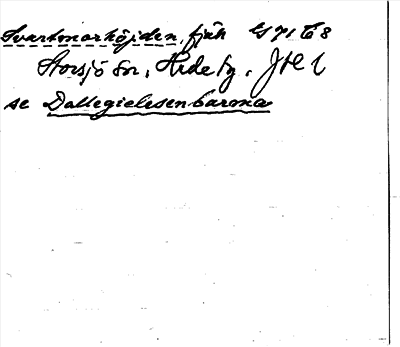 Svartmorhöjden, fjäll G 71 C 8
Storsjö sn, Hrde tg, Jtl l
se Dallegielesenbarma